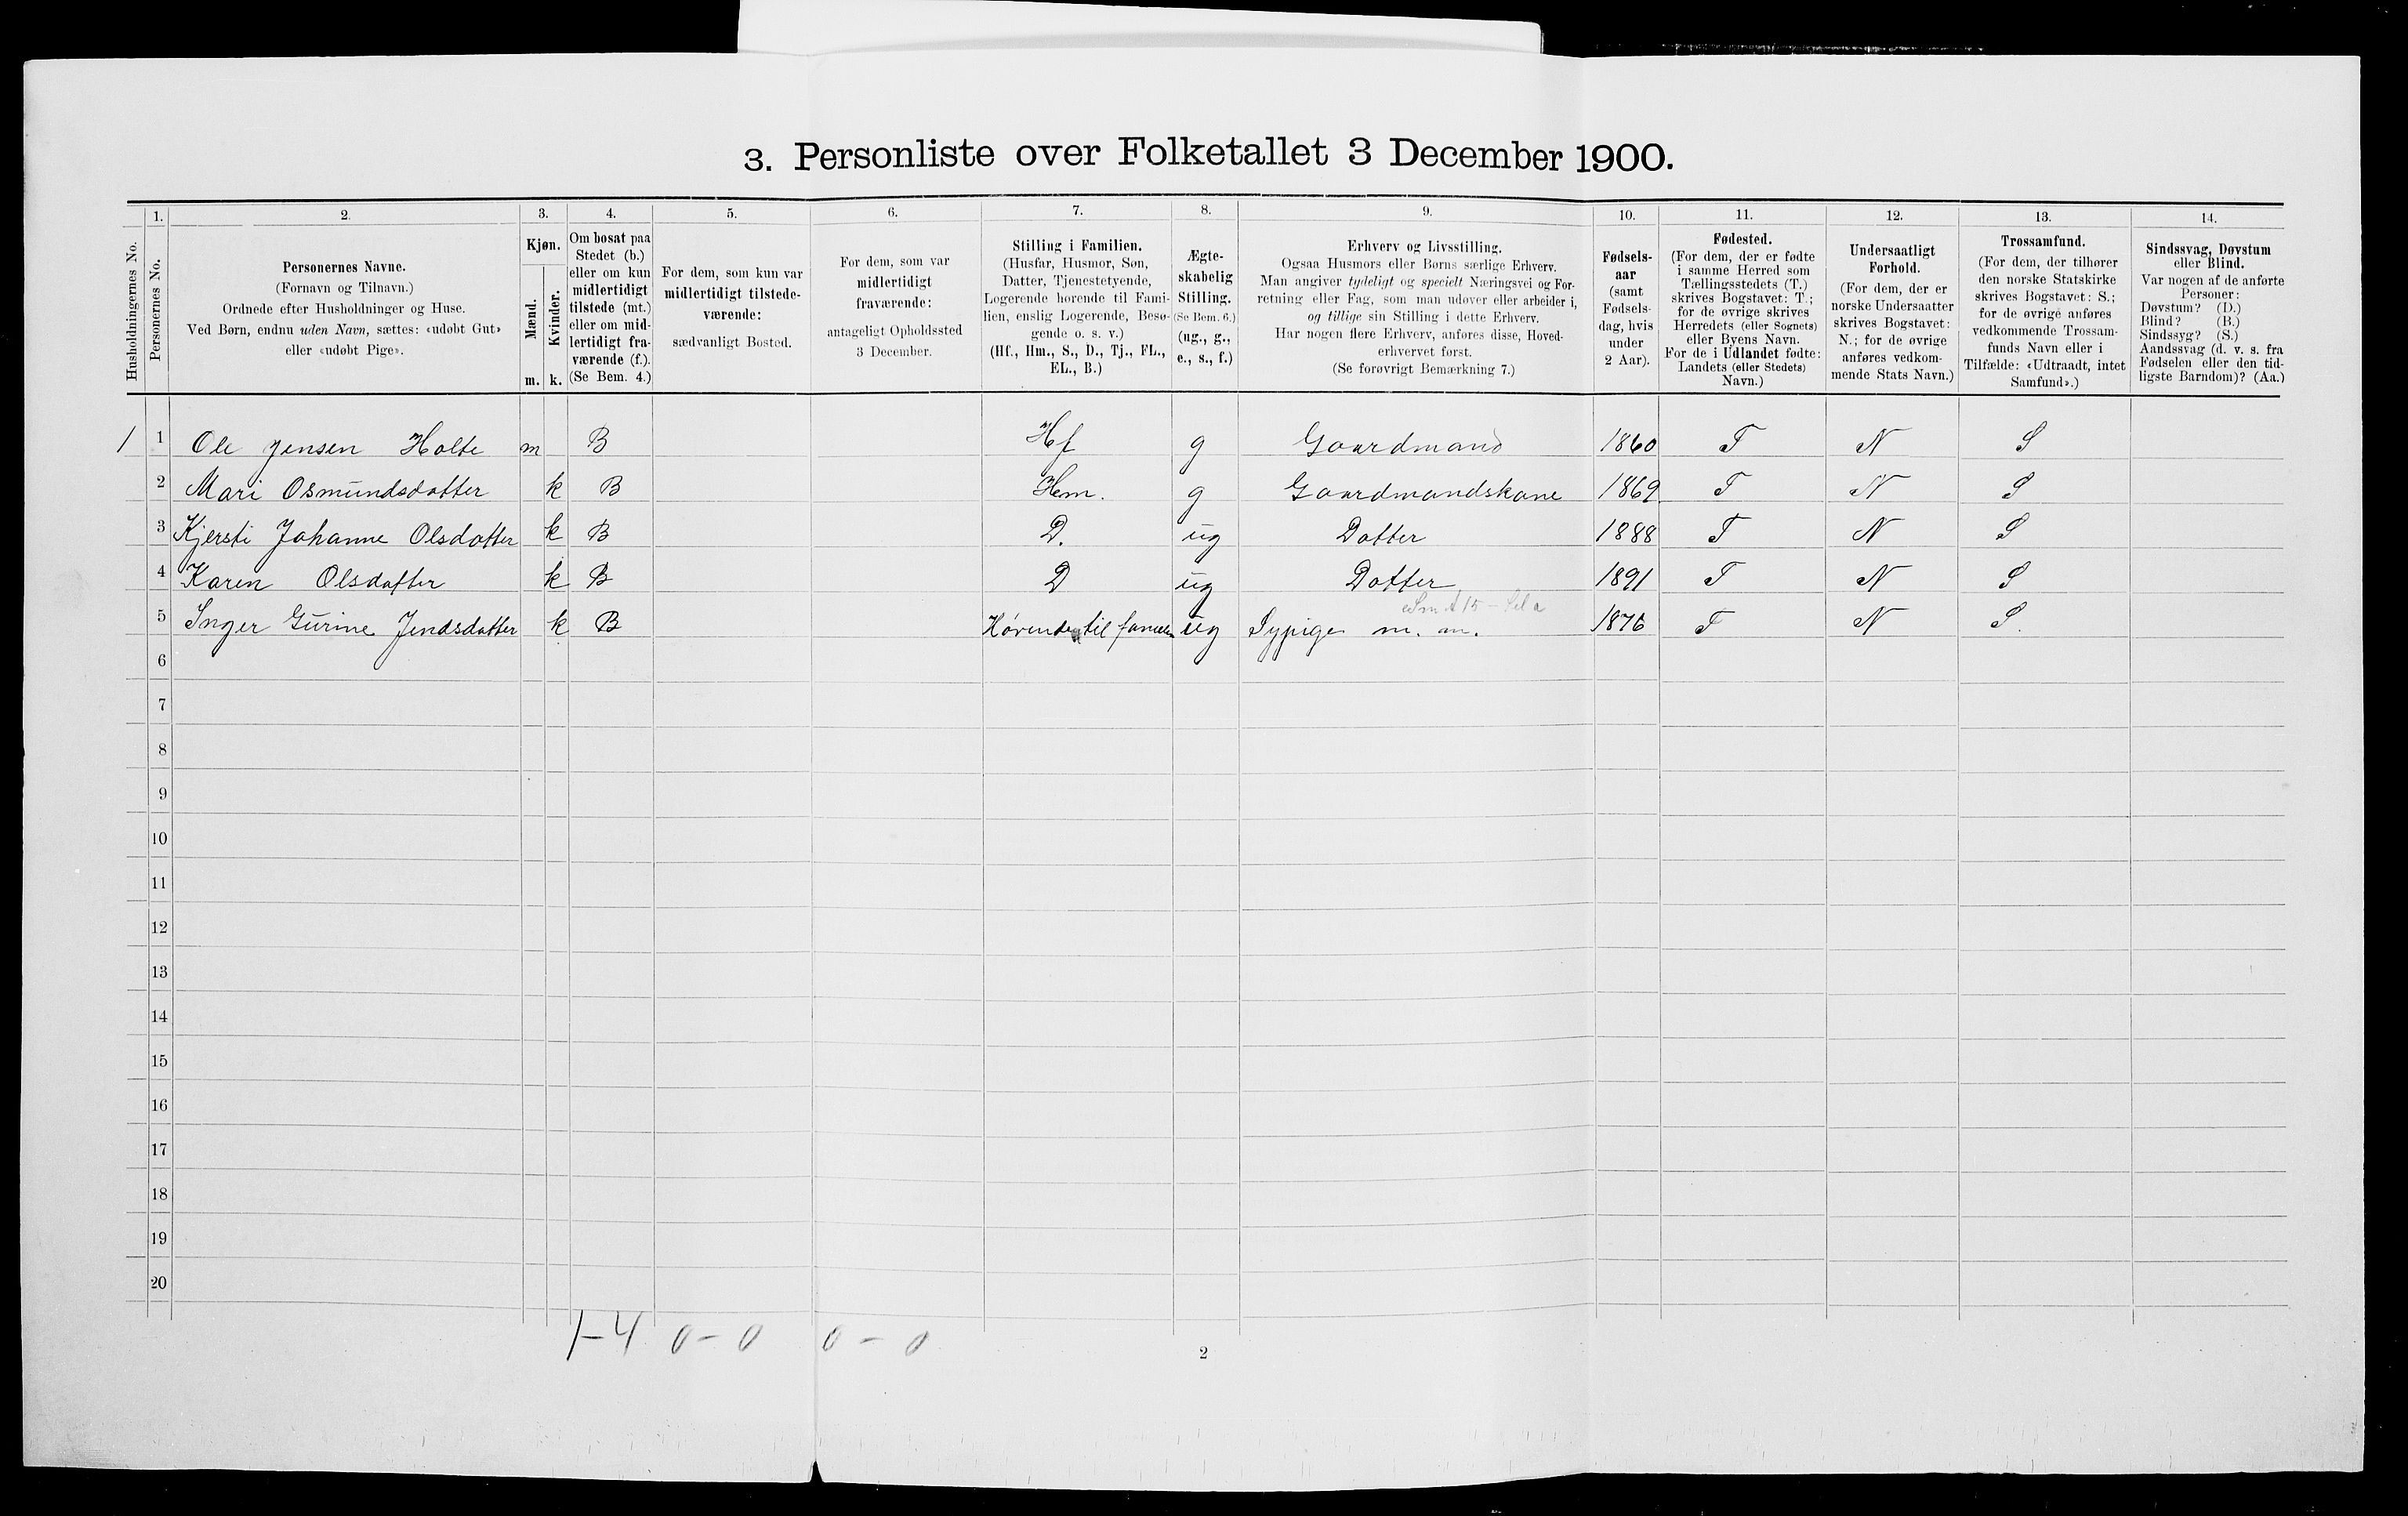 3. Personliste over Folketallet 3 December 1900.
Husholdningernes No.
1.
Personernes No.
2.
Personernes Navne.
(Fornavn og Tilnavn.)
Ordnede efter Husholdninger og Huse.
Ved Børn, endnu uden Navn, sættes: «udøbt Gut»
eller «udøbt Pige».
3.
Kjøn.
Mænd.
Kvinder.
m. k.
4.
Om bosat paa
Stedet (b.)
eller om kun
midlertidigt
tilstede (mt.)
eller om mid-
lertidigt fra-
værende (f.).
(Se Bem. 4.)
5.
For dem, som kun var
midlertidigt tilstede-
værende:
sædvanligt Bosted.
6.
For dem, som var
midlertidigt
fraværende:
antageligt Opholdssted
3 December.
7.
Stilling i Familien.
(Husfar, Husmor, Søn,
Datter, Tjenestetyende,
Logerende hørende til Fami-
lien, enslig Logerende, Besø-
gende o. s. v.)
(Hf., Hm., S., D., Tj., FL.,
EL., B.)
8.
Ægte-
skabelig
Stilling.
(Se Bem. 6.)
(ug., g.,
e., s., f.)
9.
Erhverv og Livsstilling.
Ogsaa Husmors eller Børns særlige Erhverv.
Man angiver tydeligt og specielt Næringsvei og For-
retning eller Fag, som man udøver eller arbeider i,
og tillige sin Stilling i dette Erhverv.
Har nogen flere Erhverv, anføres disse, Hoved-
erhvervet først.
(Se forøvrigt Bemærkning 7.)
10.
Fødsels-
aar
(samt
Fødsels-
dag, hvis
under
2 Aar).
11.
Fødested.
(For dem, der er fødte
i samme Herred som
Tællingsstedets (T.)
skrives Bogstavet: T.;
for de øvrige skrives
Herredets (eller Sognets)
eller Byens Navn.
For de i Udlandet fødte:
Landets (eller Stedets)
Navn.)
12.
Undersaatligt
Forhold.
(For dem, der er
norske Undersaatter
skrives Bogstavet:
N.; for de øvrige
anføres vedkom-
mende Stats Navn.)
13.
Trossamfund.
(For dem, der tilhører
den norske Statskirke
skrives Bogstavet: S.;
for de øvrige anføres
vedkommende Trossam-
funds Navn eller i
Tilfælde: «Udtraadt, intet
Samfund».)
14.
Sindssvag, Døvstum
eller Blind.
Var nogen af de anførte
Personer:
Døvstum? (D.)
Blind? (B.)
Sindssyg? (S.)
Aandssvag (d. v. s. fra
Fødselen eller den tid-
ligste Barndom)? (Aa.)
1 1 Ole Jensen Holte m B Hf g Gaardmand 1860 T N S
2 Mari Osmundsdatter k B Hm. g Gaardmandskone 1869 T N S
3 Kjersti Johanne Olsdatter k B D. ug Datter 1888 T N S
4 Karen Olsdatter k B D ug Datter 1891 T N S
5 Inger Gurine Jendsdatter k B Hørende til ug Sypige m. m. 1876 T N S.
6
7
8
9
10
11
12
13
14
15
16
17
18
19
20
1-4 0-0 0-0
2